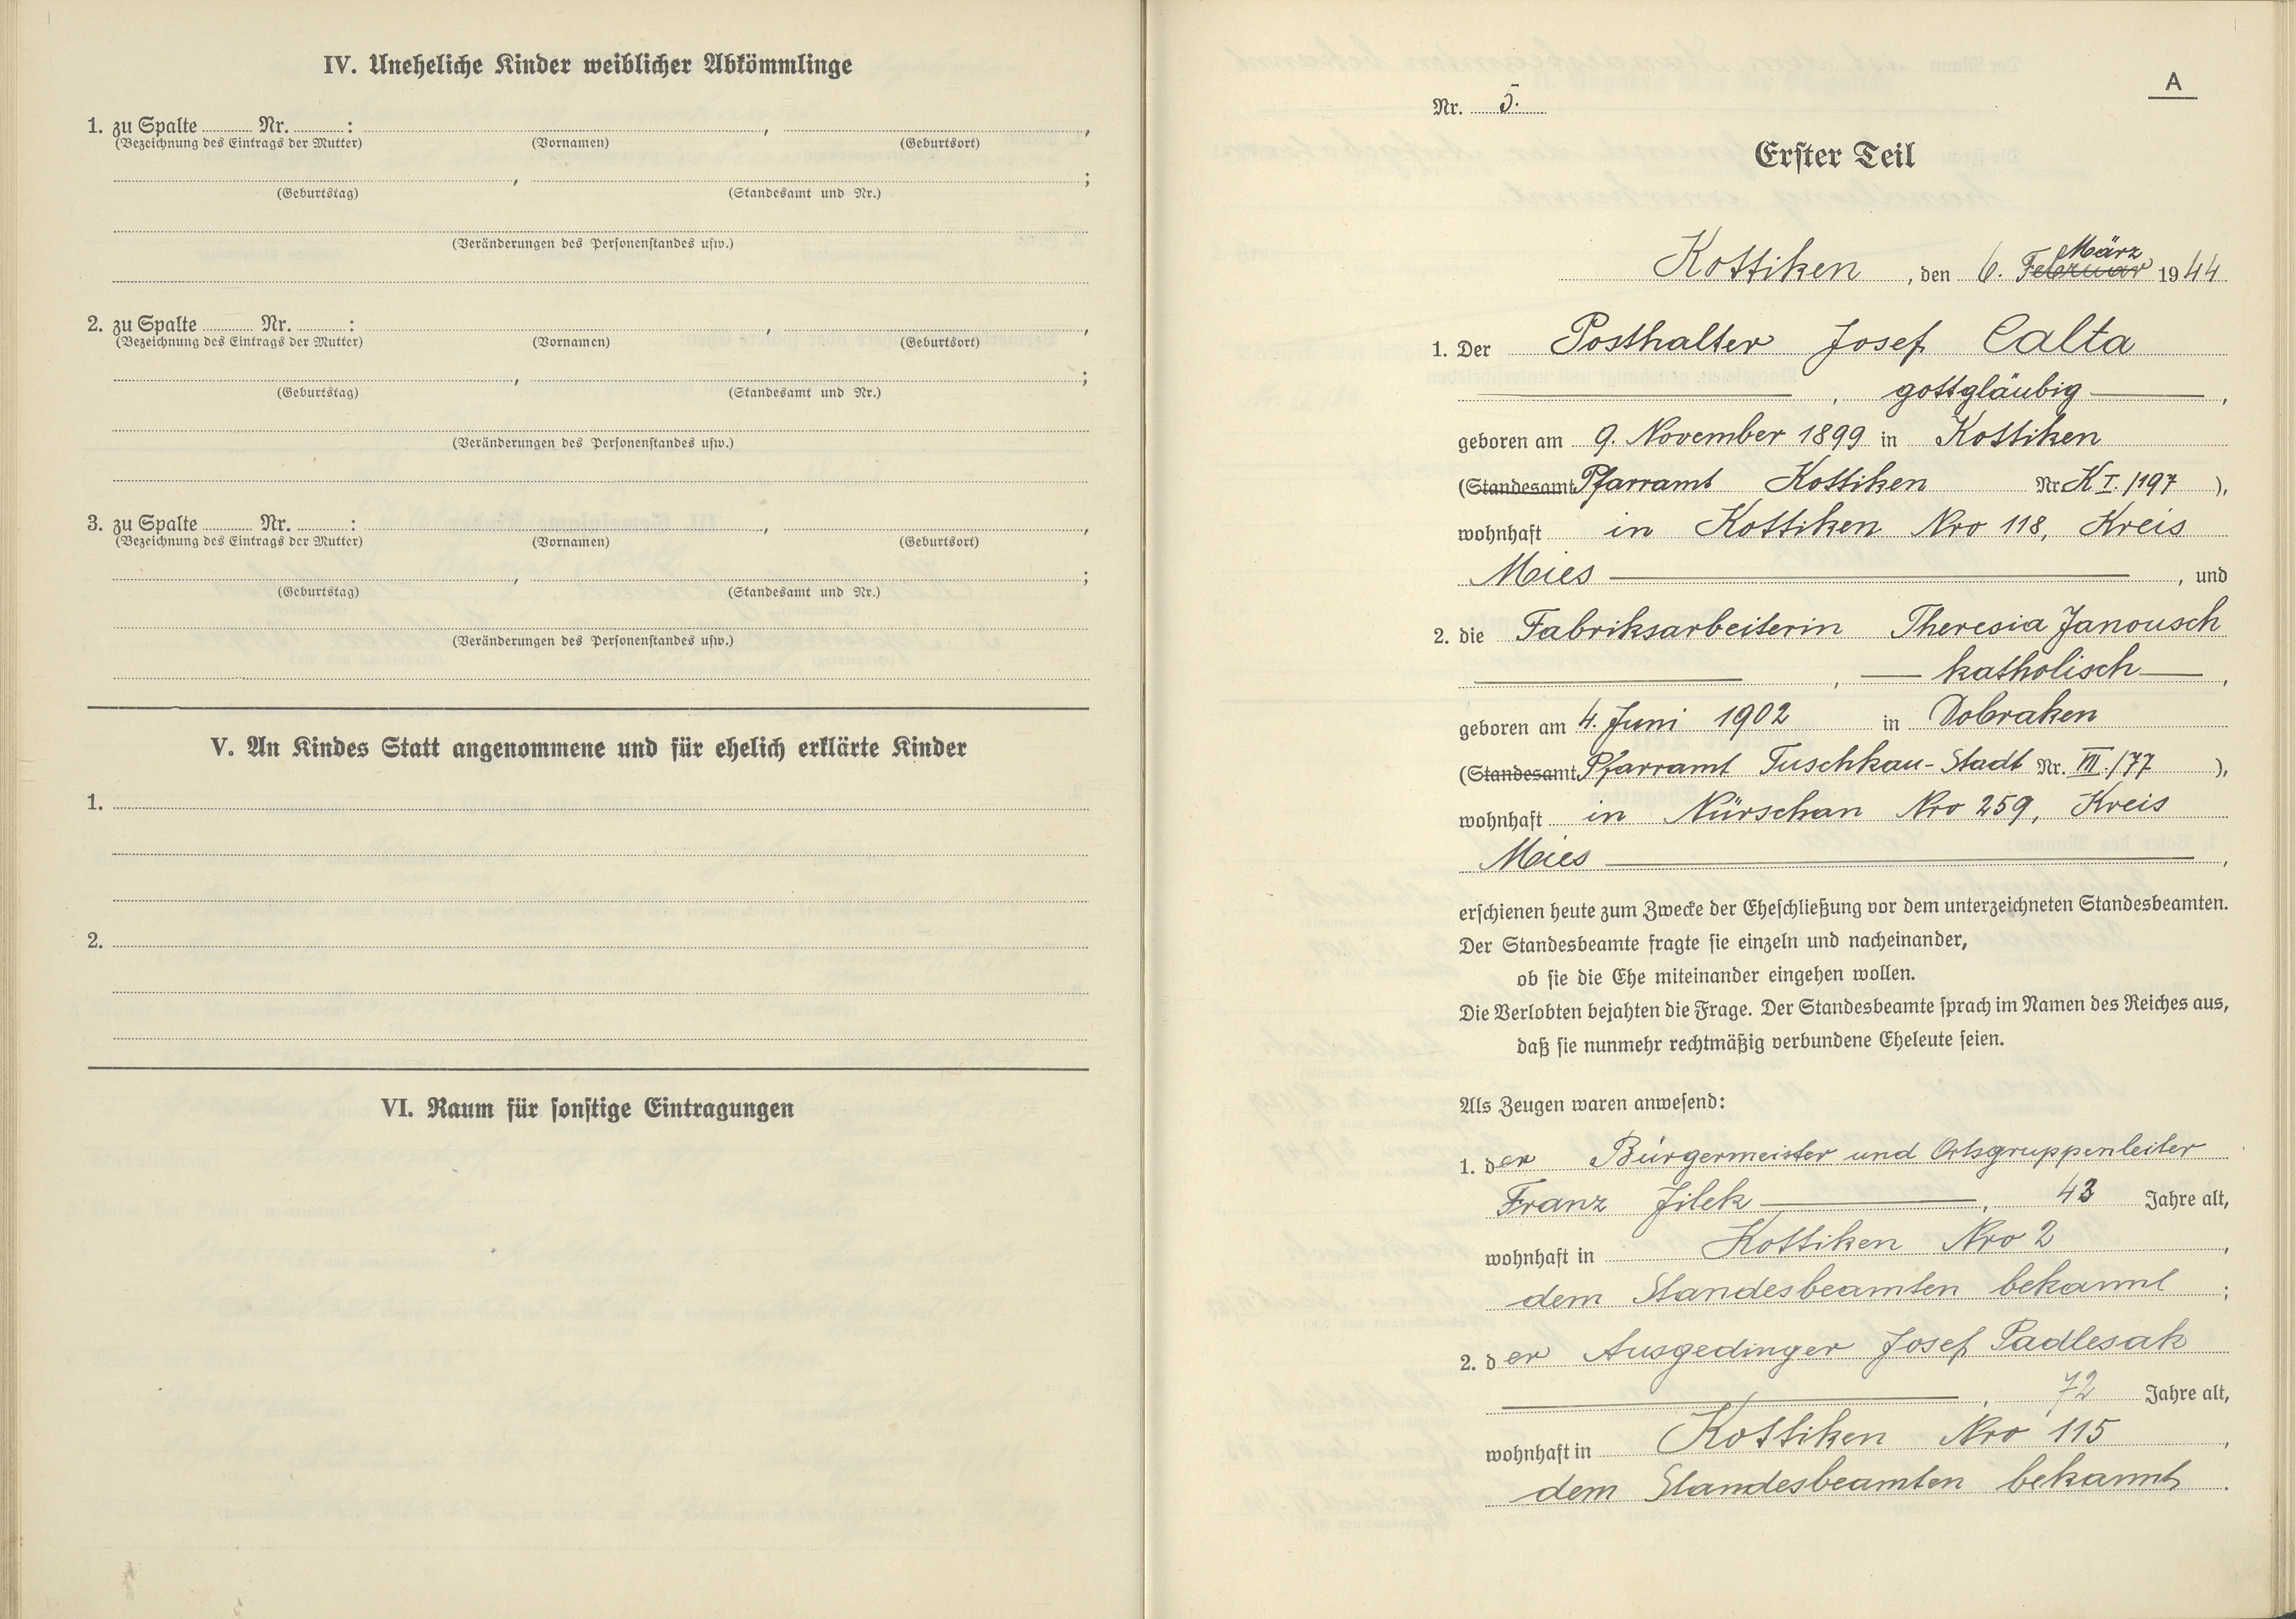 IV. Uneheliche Kinder weiblicher Abkömmlinge
1. zu Spalte Nr. : , ,
(Bezeichnung des Eintrags der Mutter) (Vornamen) (Geburtsort)
, ;
(Geburtstag) (Standesamt und Nr.)
(Veränderungen des Personenstandes usw.)
2. zu Spalte Nr. : , ,
(Bezeichnung des Eintrags der Mutter) (Vornamen) (Geburtsort)
, ;
(Geburtstag) (Standesamt und Nr.)
(Veränderungen des Personenstandes usw.)
3. zu Spalte Nr. : , ,
(Bezeichnung des Eintrags der Mutter) (Vornamen) (Geburtsort)
, ;
(Geburtstag) (Standesamt und Nr.)
(Veränderungen des Personenstandes usw.)
V. An Kindes Statt angenommene und für ehelich erklärte Kinder
1.
2.
VI. Raum für sonstige Eintragungen
A
Nr. 5.
Erster Teil
März
Kottiken, den 6. Februar 1944
1. Der Posthalter Josef Calta
, gottgläubig ,
geboren am 9. November 1899 in Kottiken
(Standesamt Pfarramt Kottiken Nr. K I./197 ),
wohnhaft in Kottiken Nro 118, Kreis
Mies , und
2. die Fabriksarbeiterin Theresia Janousch
, katholisch ,
geboren am 4. Juni 1902 in Dobraken
(Standesamt Pfarramt Tuschkau-Stadt Nr. VII./77 ),
wohnhaft in Nürschan Nro 259, Kreis
Mies ,
erschienen heute zum Zwecke der Eheschließung vor dem unterzeichneten Standesbeamten.
Der Standesbeamte fragte sie einzeln und nacheinander,
ob sie die Ehe miteinander eingehen wollen.
Die Verlobten bejahten die Frage. Der Standesbeamte sprach im Namen des Reiches aus,
daß sie nunmehr rechtmäßig verbundene Eheleute seien.
Als Zeugen waren anwesend:
1. der Bürgermeister und Ortsgruppenleiter
Franz Jilek , 43 Jahre alt,
wohnhaft in Kottiken Nro 2 ,
dem Standesbeamten bekannt ;
2. der Ausgedinger Josef Padlesak
, 72 Jahre alt,
wohnhaft in Kottiken Nro 115 ,
dem Standesbeamten bekannt .